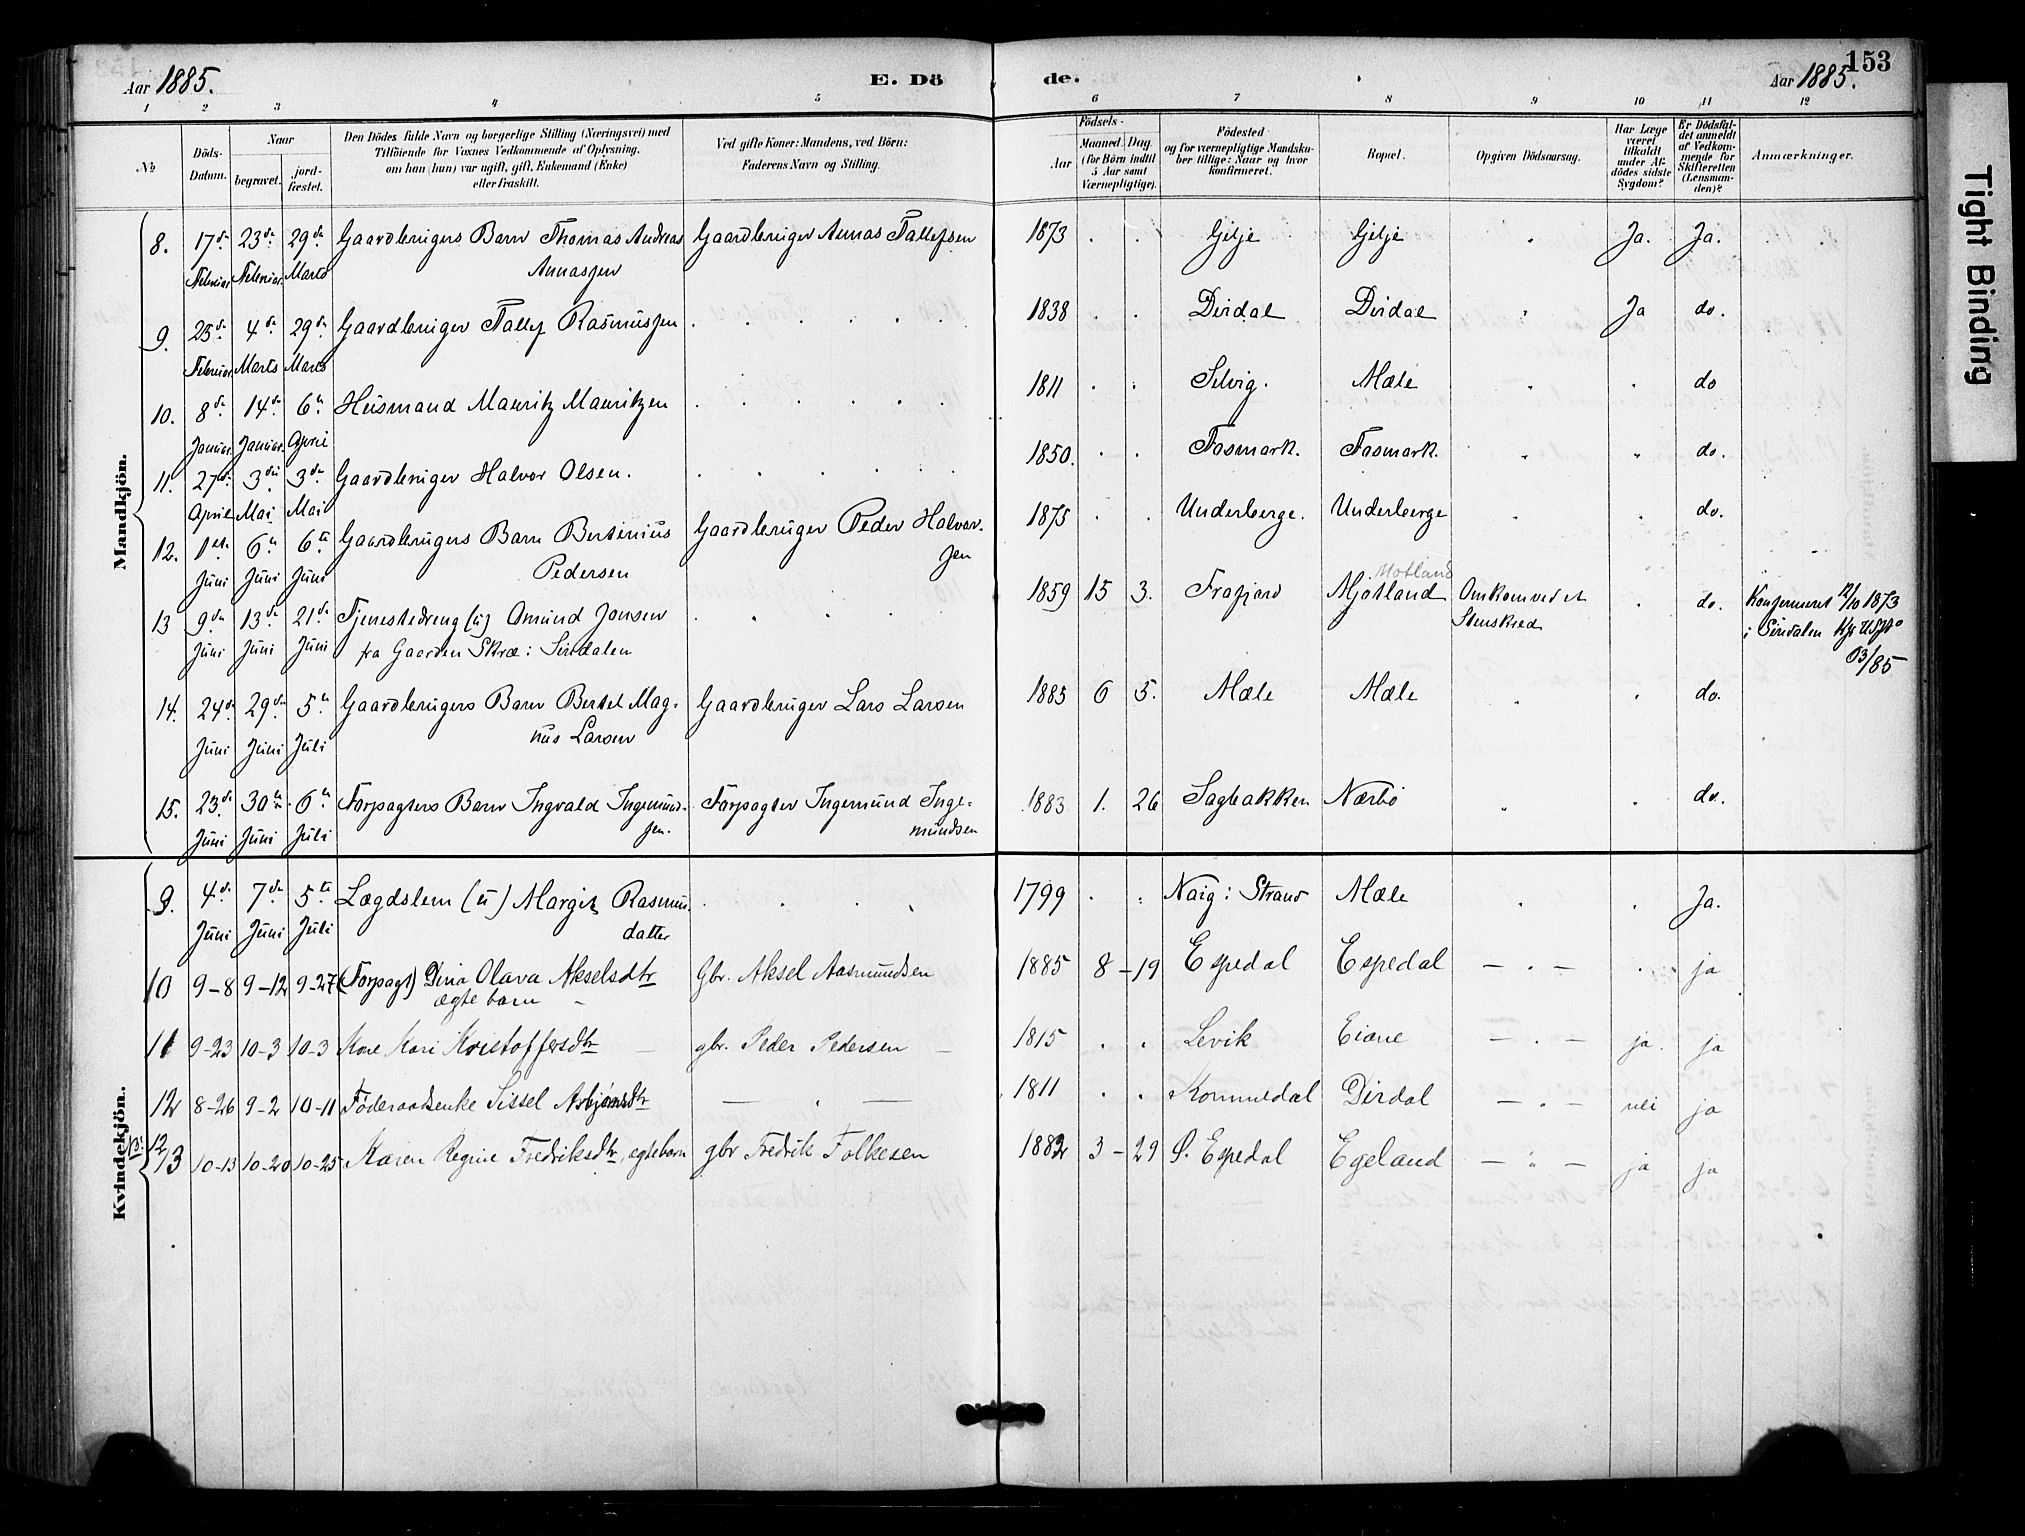 153
Aar 1885. E. Dö de. Aar 1885.
1 2 3 4 5 6 7 8 9 10 11 12
№
Döds-Datum.
Naar
begravet.
jord-fæstet.
Den Dödes fulde Navn og borgerlige Stilling (Næringsvei) med
Tilföiende for Voxnes Vedkommende af Oplysning,
om han (hun) var ugift, gift, Enkemand (Enke)
eller fraskilt.
Ved gifte Koner: Mandens, ved Börn:
Faderens Navn og Stilling.
Födsels-
Aar
Maaned. Dag
(for Börn indtil
5 Aar samt
Værnepligtige).
Födested
og for værnepligtige Mandska-
ber tillige: Naar og hvor
konfirmeret.
Bopæl.
Opgiven Dödsaarsag.
Har Læge
været
tilkaldt
under Af-
dödes sidste
Sygdom?
Er Dödsfal-
det anmeldt
af Vedkom-
mende for
Skifteretten
(Lensman-
den)?
Anmærkninger.
Tight Binding
Mandkjön.
8. 17de 23de 29de Gaardbrugers Barn Thomas Andreas Gaardbruger Annas Tallefsen 1873 . . Gilje Gilje " Ja. Ja.
Februar Februar Marts Annassen
9. 25de 4de 29de Gaardbruger Tallef Rasmussen . . . . . 1838 . . Dirdal Dirdal " Ja do.
Februar Marts Marts
10. 8de 14de 6te Husmand Mauritz Mauritzen . . . . . 1811 . . Selvig. Mæle " " do
Januar Januar April
11. 27de 3die 3die Gaardbruger Halvor Olsen. . . . . . 1850. . . Fosmark. Fosmark. " " do.
April Mai Mai
12. 1ste 6te 6te Gaardbrugers Barn Bertinius Gaardbruger Peder Halvor- 1875 . . Underberge. Underberge " . do.
Juni Juni Juni Pedersen sen
Motland
13 9de 13de 21de Tjenestedreng (u) Omund Jonsen . . . . 1859 15 3. Frafjord Mjotland Omkom ved et . do. Konfirmeret 12/10 1873
Juni Juni Juni fra Gaarden Skræ i Sirdalen Stenskred i Sirdalen
/85
14. 24de 29de 5te Gaardbrugers Barn Bertel Mag- Gaardbruger Lars Larsen 1885 6 5. Mæle Mæle " . do.
Juni Juni Juli nus Larsen
15. 23de 30te 6te Forpagters Barn Ingvald Ingemund- Forpagter Ingemund Inge- 1883 1. 26 Sagbakken Nærbö " . do.
Juni Juni Juli sen. mundsen
Kvindekjön.
9. 4de 7de 5te Lægdslem (u) Margit Rasmus- . . . . 1799 . . Naig i Strand Mæle . . Ja.
Juni Juni Juli datter
10 9-8 9-12 9-27 (Forpagt) Dina Olava Akselsdtr Gbr. Aksel Aasmundsen 1885 8 - 19 Espedal Espedal - . - . ja
ægte barn -
11 9-23 10-3 10-3 Kone Kari Kristoffersdtr - gbr. Peder Pedersen - 1815 . . Levik Eiane - . - ja. ja
12 8-26 9-2 10-11 Föderaadsenke Sissel Asbjørnsdtr - . - 1811 . . Kommedal Dirdal - . - nei ja
13 10-13 10-20 10-25 Karen Regine Fredriksdtr, egtebarn gbr Fredrik Folkesen 1882 3 - 29 Ø. Espedal Egeland - " - ja ja